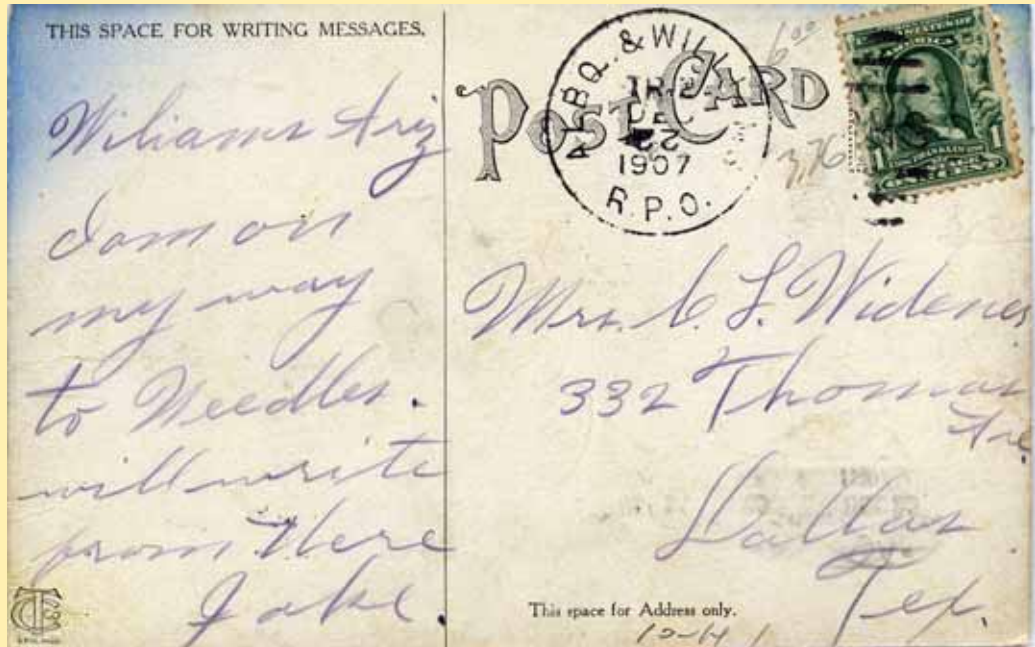 THIS SPACE FOR WRITING MESSAGES.
Wiliams Ariz
I am on
my way
to Needles.
will write
from there
Jake.
POST CARD
ALBQ. & WILL
TR 2
DEC
22
1907
R.P.O.
6 00
3,76
1 1
Mrs. C. L. Widener
332 Thomas
Ave.
Dallas
Tex.
This space for Address only.
10-14